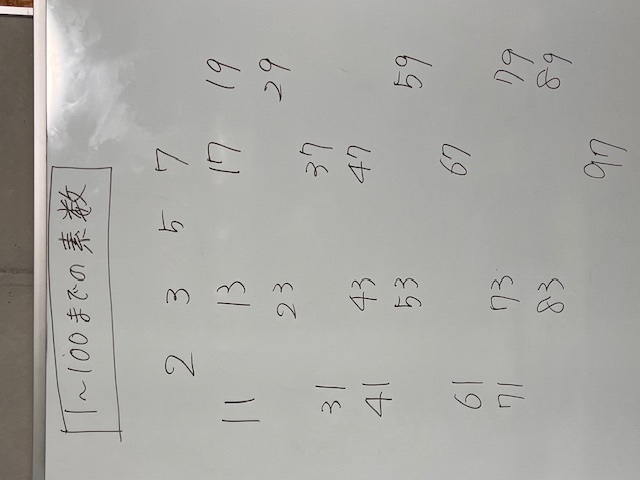 1~100までの素数
2 3 5 7
11 13 17 19
23 29
31 37
41 43 47
53 59
61 67
71 73 79
83 89
97